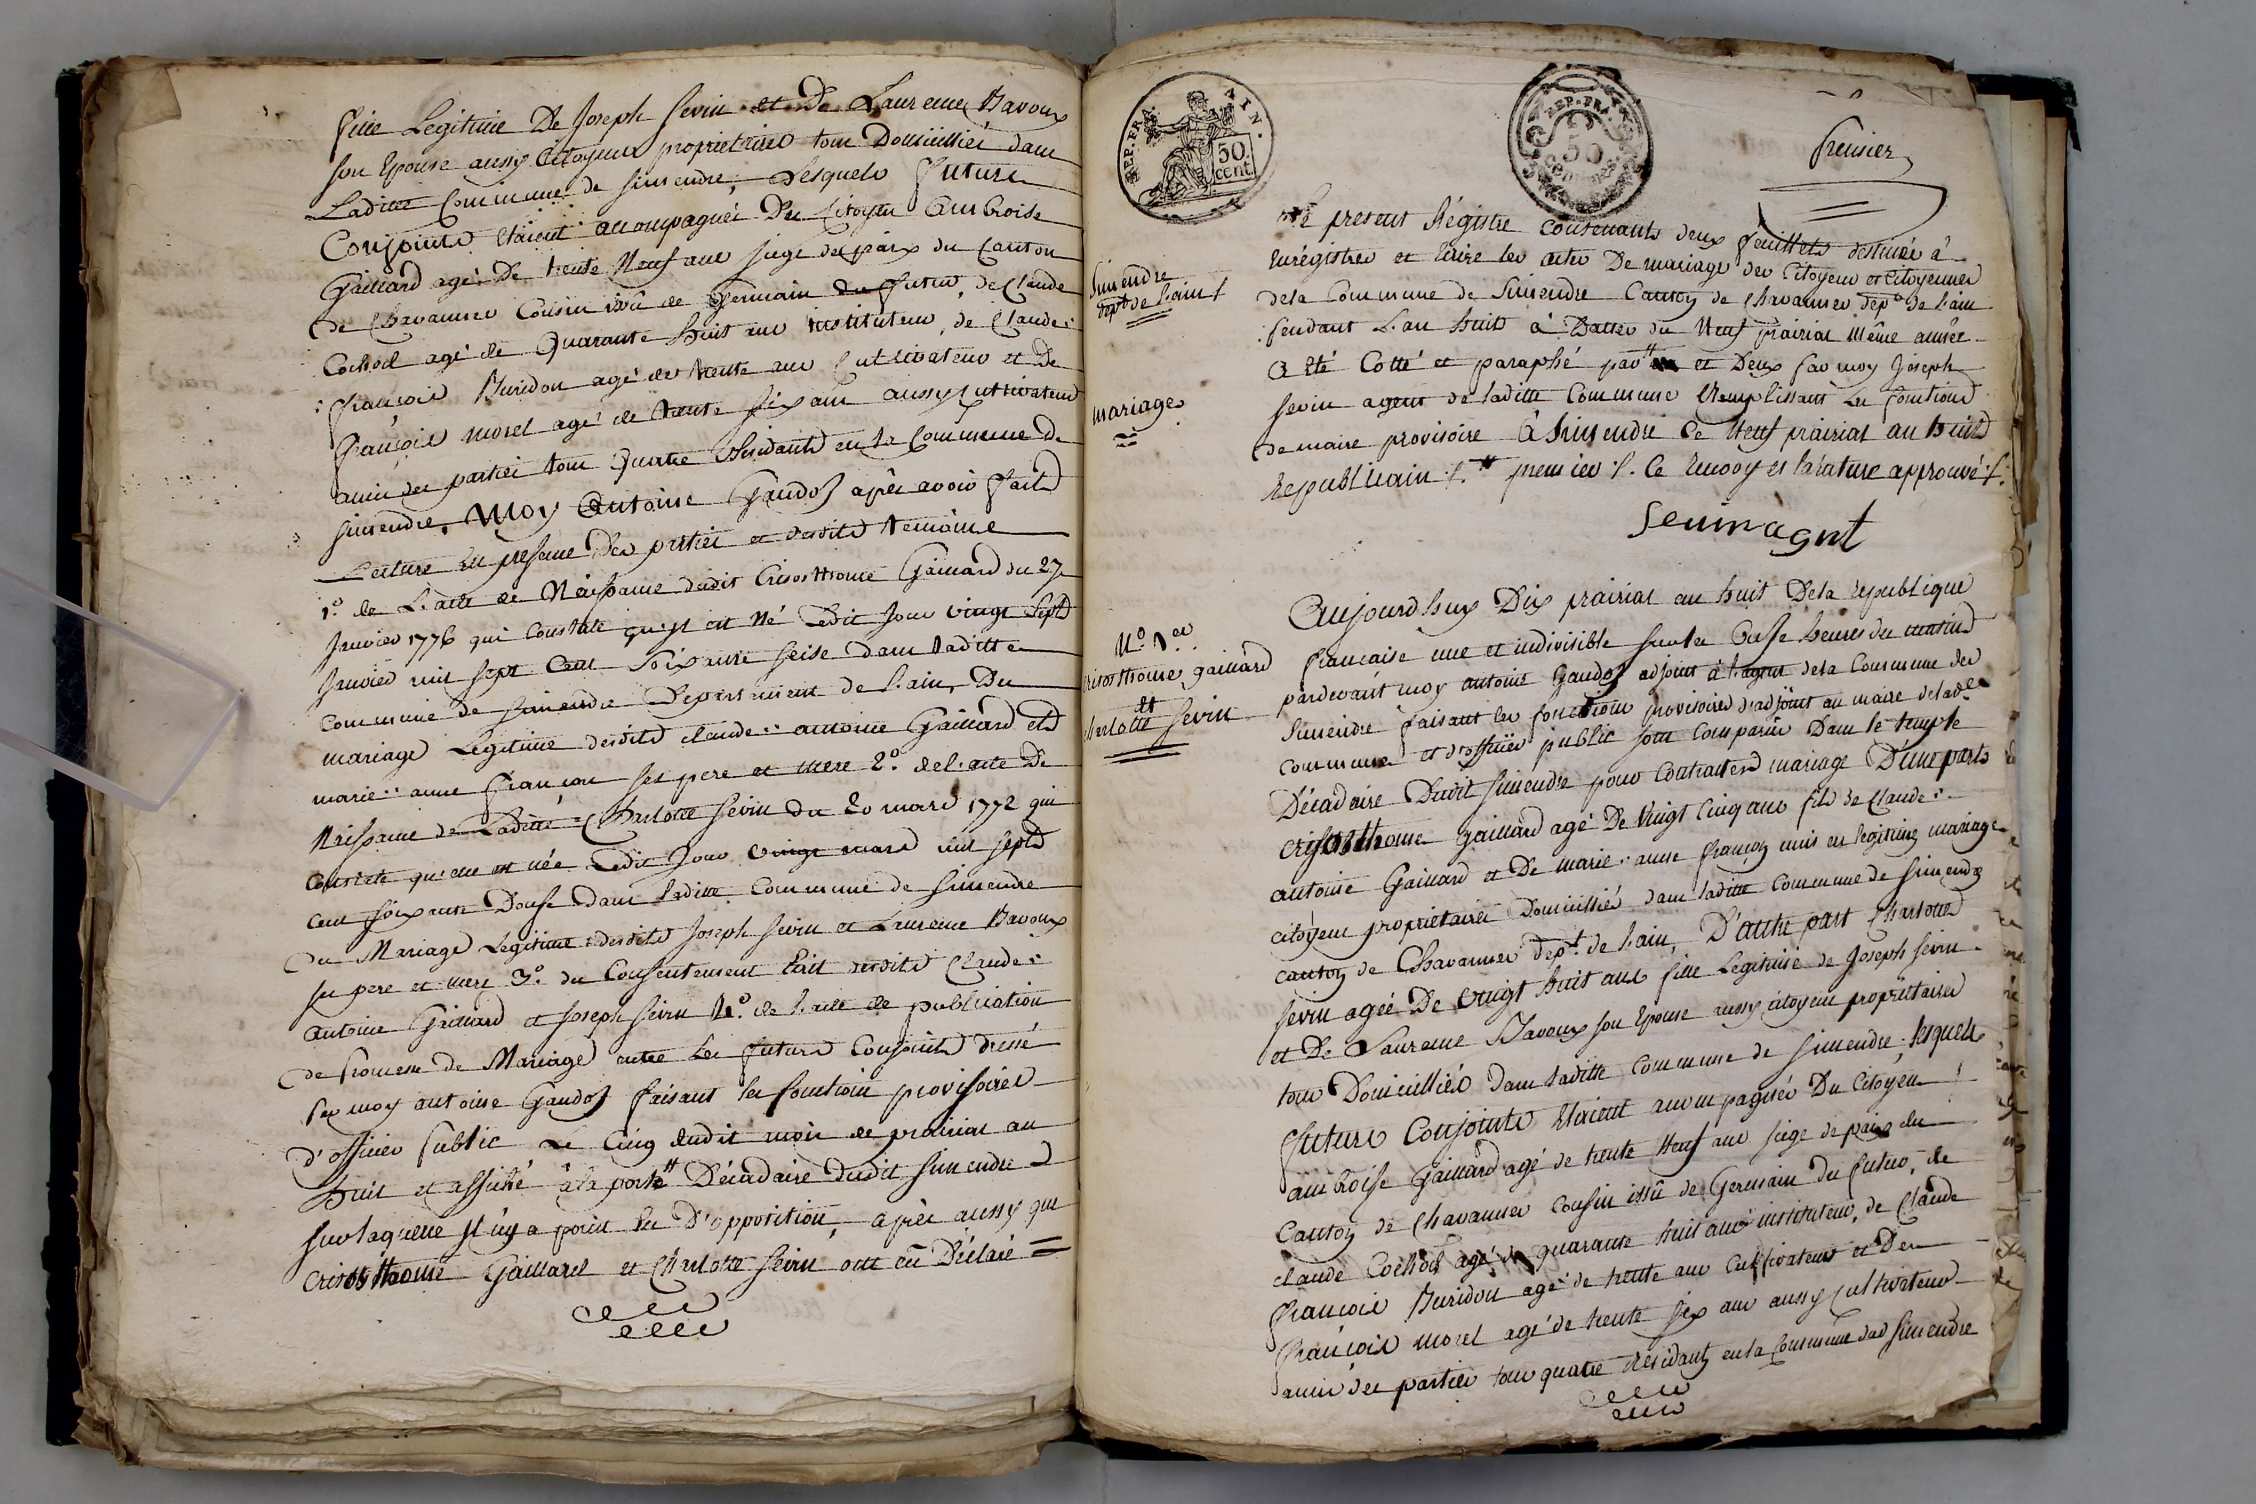 fille Legitime De Joseph Sevin et De Laurence Bavoux
son Epouse aussy Citoyens proprietaires tous Domicilliés dans
Laditte Commune de Simendre, Lesquels futurs
Conjoints étaient accompagnés Du Citoyen Ambroise
Gaillard agé De trente Neuf ans juge de paix du Canton
de Chavannes Cousin issû de Germain du futur, de Claude
Cochod agé de Quarante huit ans instituteur, de Claude
françois Buridon agé de trente ans Cultivateur et De
françois morel agé de trente six ans aussy Cultivateur
amis des parties tous Quatre Résidants en la Commune de
Simendre, Moy Antoine Gaudoz après avoir fait
Lecture En presence Des parties et desdits temoins
1.º de L'acte de Naissance dudit Crisosthome Gaillard du 27
Janvier 1776 qui Constate qu'il est Né Ledit Jour vingt Sept
Janvier mil sept Cent Soixante seise dans laditte
Commune de Simendre Département de L'ain, Du
mariage Legitime desdits claude antoine Gaillard et
marie anne françon ses pere et mere 2.º de l'acte De
Naissance de Laditte Charlotte Sevin du 20 mars 1772 qui
Constate qu'elle est née Ledit Jour vingt mars mil sept
cent soixante Douse dans Laditte Commune de Simendre
Du Mariage Legitime desdits Joseph Sevin et Laurence Bavoux
ses pere et mere 3.º du Consentement desdits Claude
Antoine Gaillard et Joseph Sevin 4.º de L'acte de publication
De promesse de Mariage entre Les futurs Conjoints dressé
par moy antoine Gaudoz faisant les fonctions provisoires
d'officier public Le Cinq dudit mois de prairial an
huit et affiché à la porte Décadaire dudit Simendre
sur laquelle il n'y a point eu D'opposition, après aussy que
Crisosthome Gaillard et Charlotte Sevin ont eû Déclaré =
REP. FRA.
ATN.
50
cent.
REP. FRA.
50
Premier
Le present Régistre Contenants deux feuillets destiné à
Enrégistrer et Ecrire les actes De mariage des Citoyens et Citoyennes
dela Commune de Simendre Canton de Chavannes dep.t de L'ain
pendant L'an huit à Datter du Neuf prairial même année
a Eté Cotté et paraphé par et Deux par moy Joseph
Sevin agent de laditte Commune Remplissant Les fonctions
de maire provisoire à Simendre Ce Neuf prairial an huit
Republicain ./. premier ./. Ce Renvoy et la Rature approuvé ./.
Simendre
dep.t de L'ain
mariages
Sevin agent
N.º 1.er
Crisosthome gaillard
et
Charlotte Sevin
Aujourdhuy Dix prairial an huit Dela Republique
francaise une et indivisible sur les Onse heures du matin
pardevant moy antoine Gaudoz adjoint à l'agent dela Commune de
Simendre faisant les fonctions provisoires d'adjoint au maire de lad.e
commune et d'officier public sont comparûs Dans le temple
Décadaire Dudit Simendre pour Contracter mariage D'une part
Crisosthome Gaillard agé De Vingt Cinq ans fils de Claude
antoine Gaillard et De marie anne françon unis en legitime mariage
citoyens proprietaires Domicilliés dans laditte Commune de Simendre
canton de Chavannes dep.t de L'ain, D'autre part Charlotte
Sevin agée De Vingt huit ans fille Legitime de Joseph Sevin
et De Laurence Bavoux son Epouse aussy citoyens proprietaires
tous Domicilliés dans laditte Commune de Simendre, lesquels
futurs Conjoints Etaient accompagnés Du Citoyen
ambroise Gaillard agé de trente Neuf ans juge de paix du
Canton de Chavannes cousin issû de Germain du futur, de
claude Cochod agé de quarante huit ans instituteur, de Claude
François Buridon agé de trente ans Cultivateur et De
françois morel agé de trente six ans aussy cultivateur
amis des parties tous quatre Résidants en la Commune dud Simendre